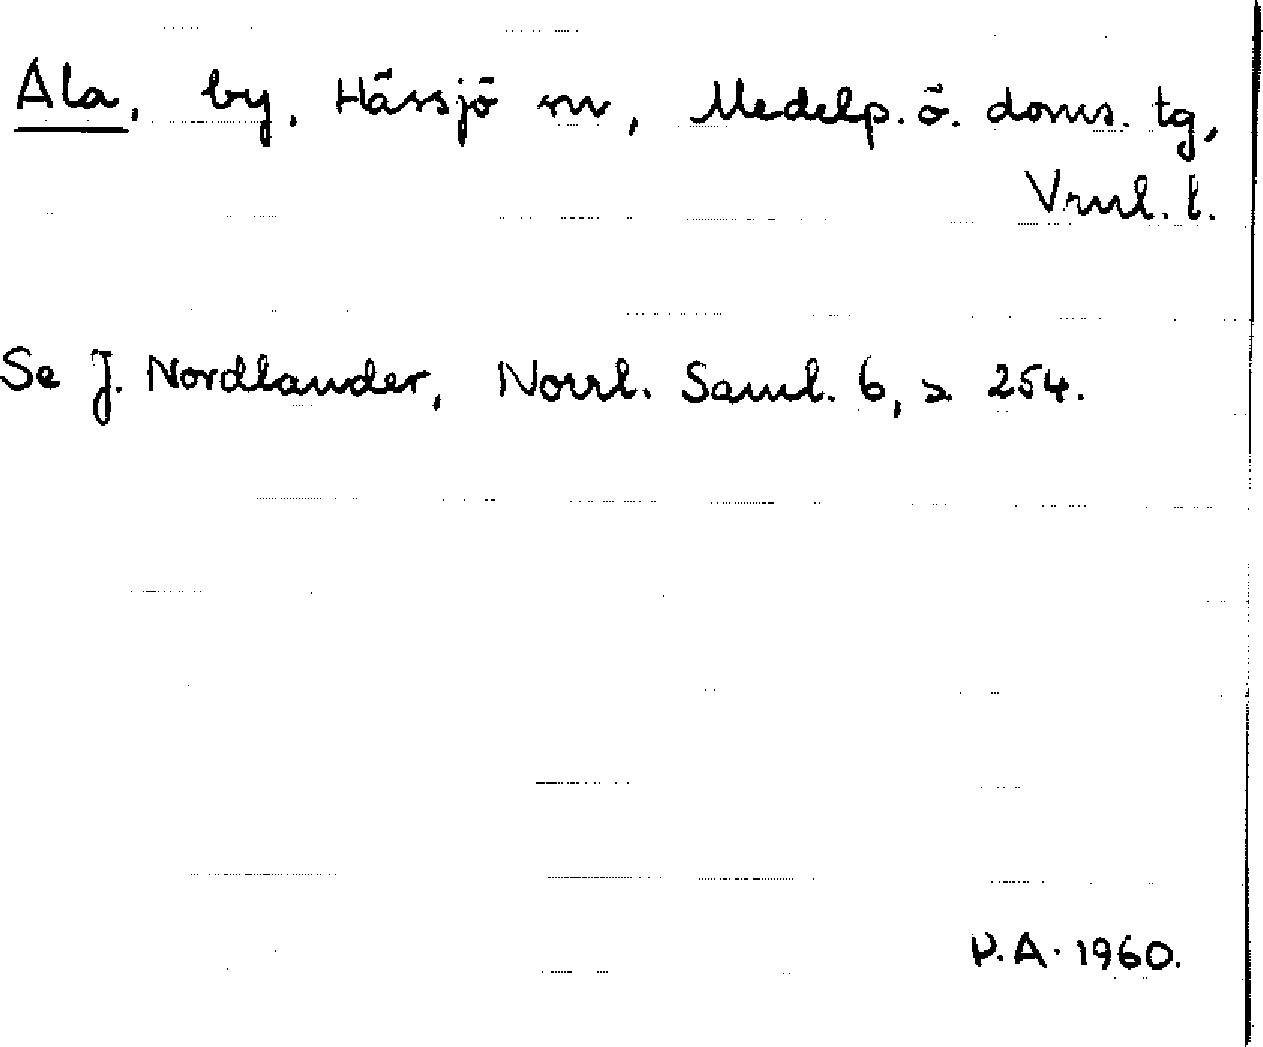 Ala, by, Hässjö sn, Medelp. ö. doms. tg,
Vrnl. l.
Se J. Nordlander, Norrl. Saml. 6, s 254.
P.A. 1960.